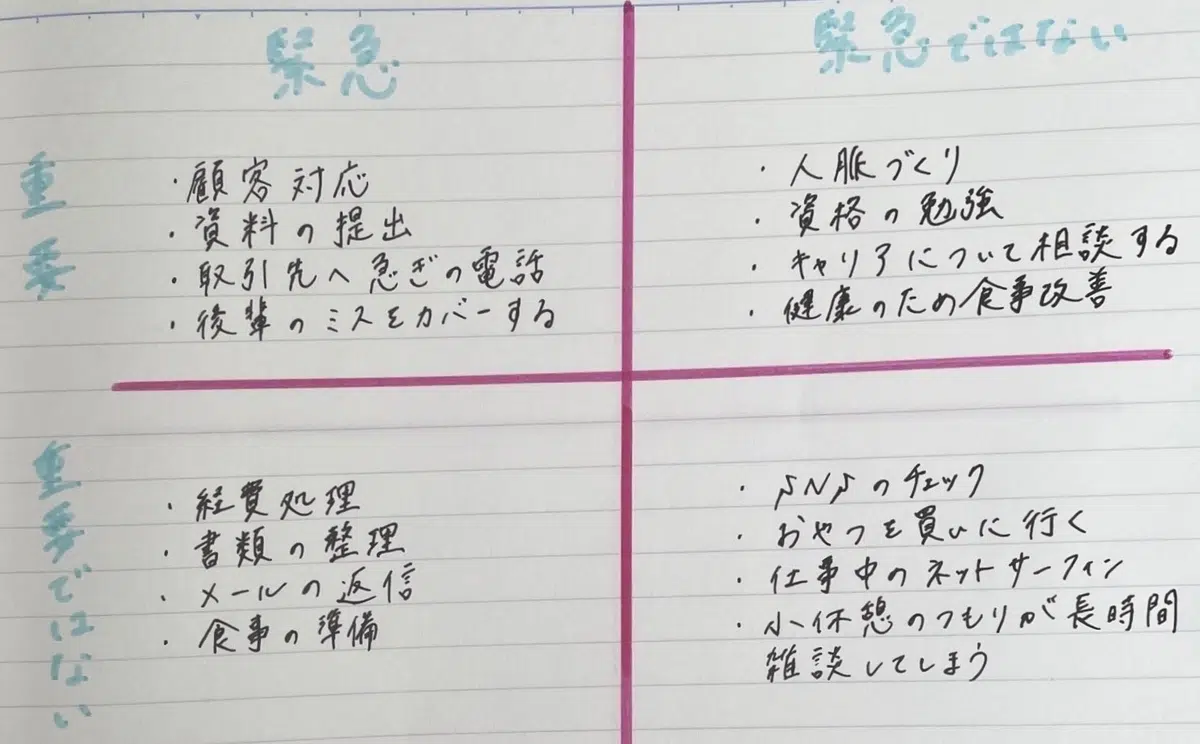 緊急
緊急ではない
重要
・顧客対応
・資料の提出
・取引先へ急ぎの電話
・後輩のミスをカバーする
・人脈づくり
・資格の勉強
・キャリアについて相談する
・健康のため食事改善
重要ではない
・経費処理
・書類の整理
・メールの返信
・食事の準備
・SNSのチェック
・おやつを買いに行く
・仕事中のネットサーフィン
・小休憩のつもりが長時間
雑談してしまう